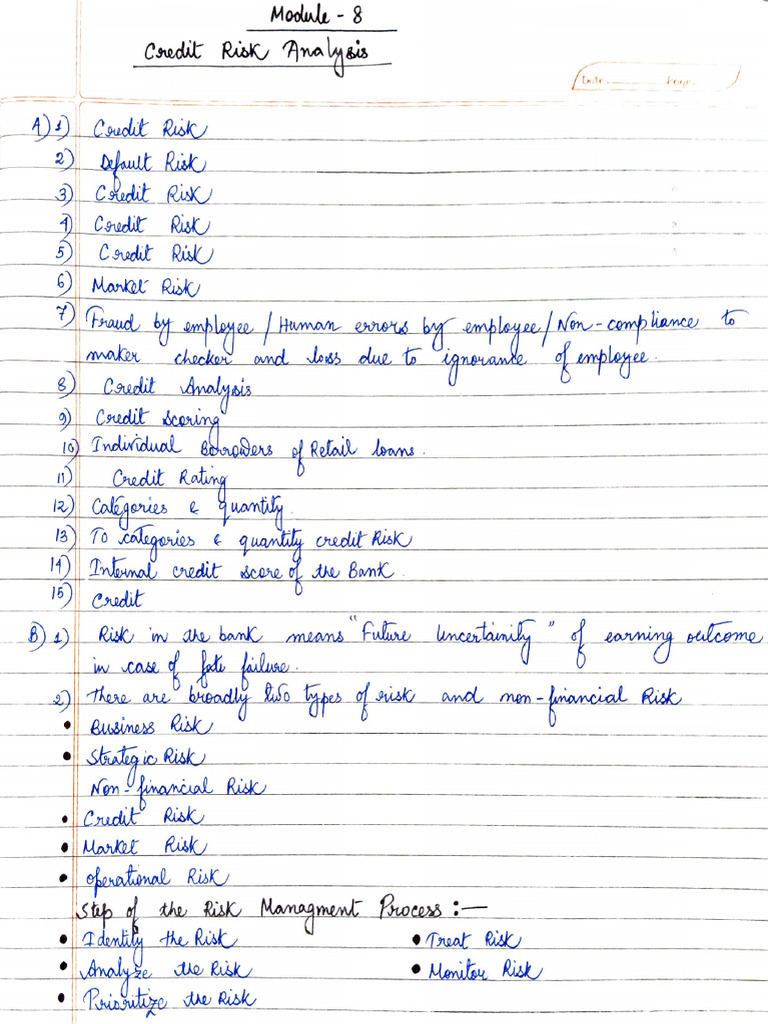 Module - 8
Credit Risk Analysis
Date Page
A) 1) Credit Risk
2) Default Risk
3) Credit Risk
4) Credit Risk
5) Credit Risk
6) Market Risk
7) Fraud by employee / Human errors by employee / Non-compliance to
maker checker and loss due to ignorance of employee.
8) Credit Analysis
9) Credit scoring
10) Individual Borrowers of Retail loans.
11) Credit Rating
12) Categories & quantity.
13) To categories & quantity credit Risk
14) Internal credit score of the Bank.
15) Credit
B) 1) Risk in the bank means "Future Uncertainity" of earning outcome
in case of failure.
2) There are broadly two types of risk and non-financial Risk
• Business Risk
• Strategic Risk
Non-financial Risk
• Credit Risk
• Market Risk
• Operational Risk
Step of the Risk Managment Process :—
• Identity the Risk • Treat Risk
• Analyze the Risk • Monitor Risk
• Prioritize the Risk